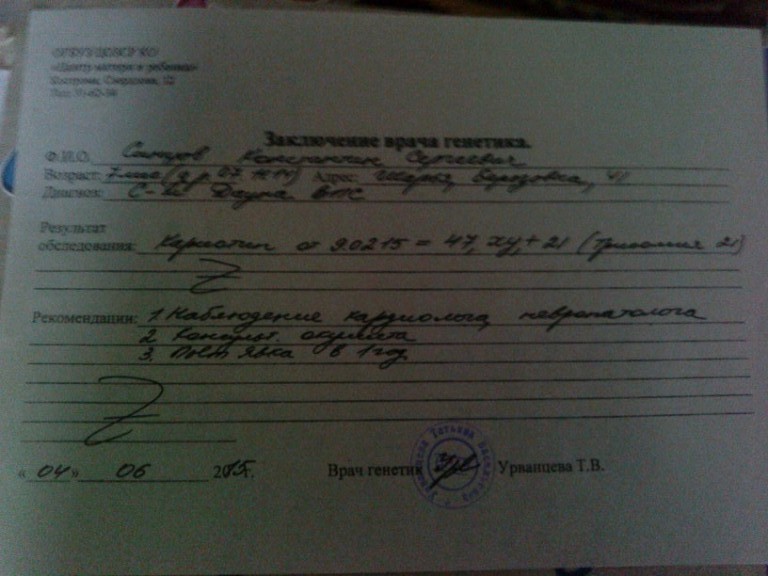 ОГБУЗ ЦОЗСР КО
«Центр матери и ребенка»
Кострома, Свердлова, 12
Заключение врача генетика.
Ф.И.О. Константин Сергеевич
Возраст: 7 мес (д.р. 07.11.14) Адрес: Березовка,
Диагноз: С-м Дауна ВПС
Результат
обследования: Кариотип от 9.02.15 = 47, xy, + 21 (трисомия 21)
Рекомендации: 1. Наблюдение кардиолога, невропатолога
2. Консульт. окулиста
3. явка в 1 год
«04» 06 2015г. Врач генетик Урванцева Т.В.